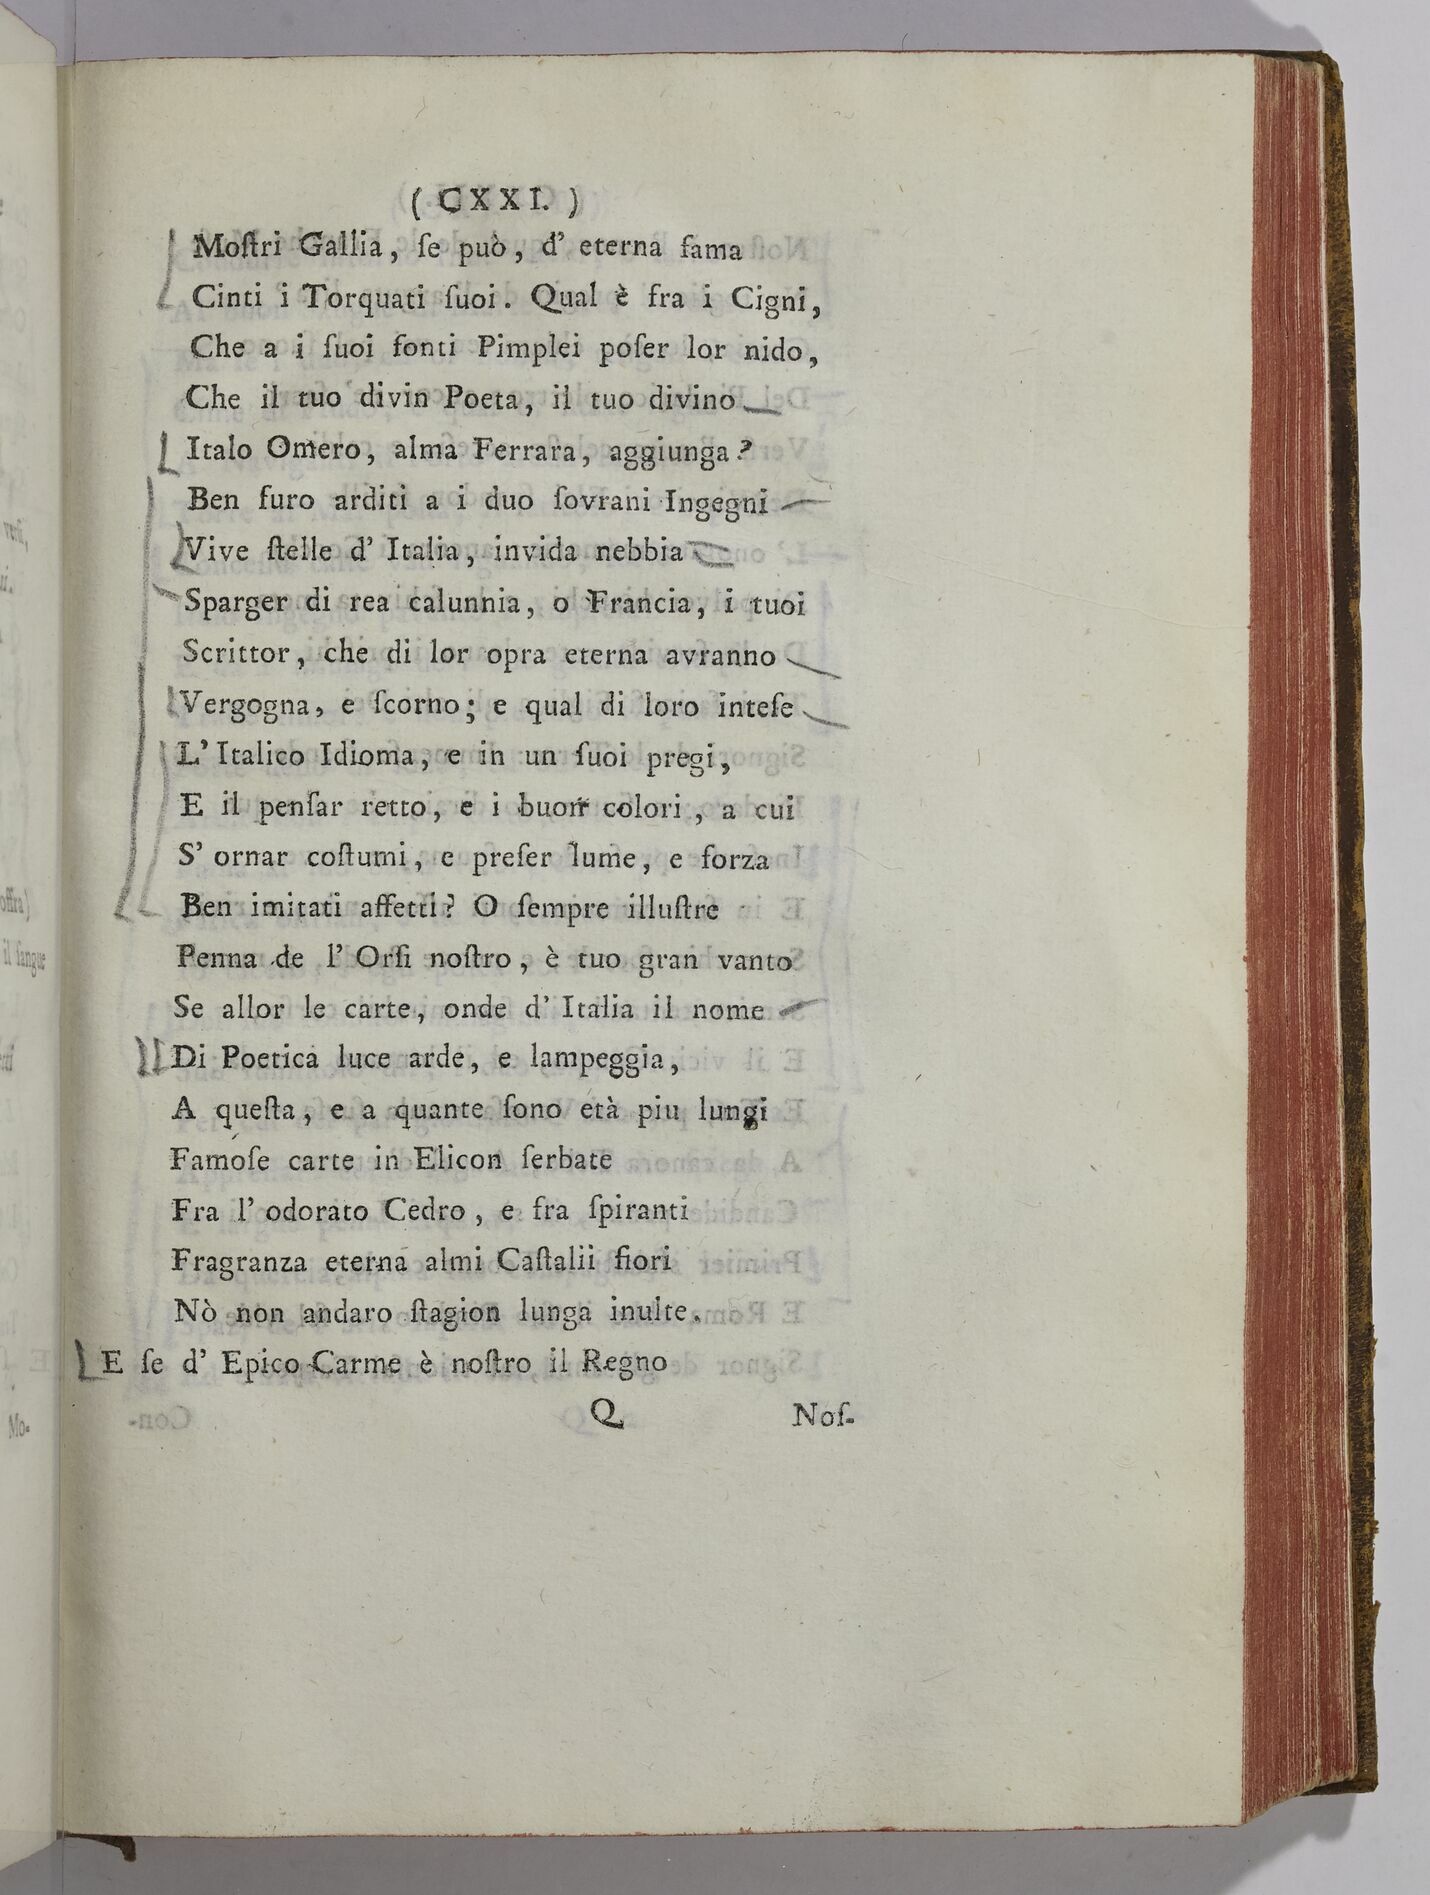 ( CXXI. )
Moſtri Gallia, ſe può, d' eterna fama
Cinti i Torquati ſuoi. Qual è fra i Cigni,
Che a i ſuoi fonti Pimplei poſer lor nido,
Che il tuo divin Poeta, il tuo divino
Italo Omero, alma Ferrara, aggiunga?
Ben furo arditi a i duo ſovrani Ingegni
Vive ſtelle d' Italia, invida nebbia
Sparger di rea calunnia, o Francia, i tuoi
Scrittor, che di lor opra eterna avranno
Vergogna, e ſcorno; e qual di loro inteſe
L' Italico Idioma, e in un ſuoi pregi,
E il penſar retto, e i buon colori, a cui
S' ornar coſtumi, e preſer lume, e forza
Ben imitati affetti? O ſempre illuſtre
Penna de l' Orſi noſtro, è tuo gran vanto
Se allor le carte, onde d' Italia il nome
Di Poetica luce arde, e lampeggia,
A queſta, e a quante ſono età piu lungi
Famoſe carte in Elicon ſerbate
Fra l' odorato Cedro, e fra ſpiranti
Fragranza eterna almi Caſtalii fiori
Nò non andaro ſtagion lunga inulte.
E ſe d' Epico Carme è noſtro il Regno
Q Noſ-